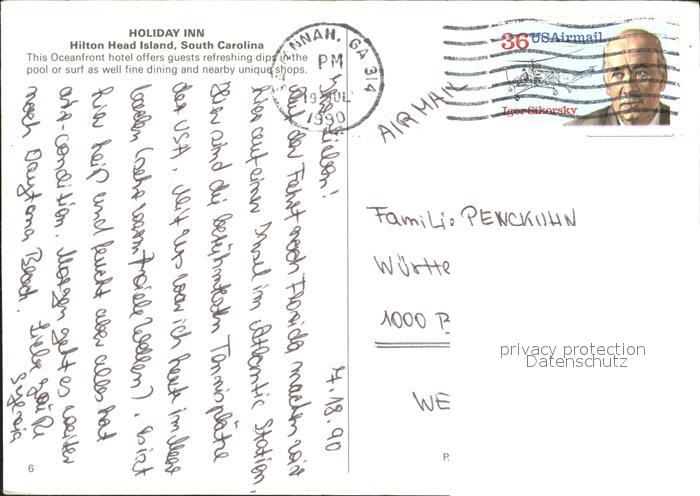 HOLIDAY INN
Hilton Head Island, South Carolina
This Oceanfront hotel offers guests refreshing dips in the
pool or surf as well fine dining and nearby unique shops.
NNAH, GA 314
PM
19 JUL
1990
36 USAirmail
Igor Sikorsky
AIR MAIL
7.18.90
Lieben!
Auf der Fahrt nach Florida machen wir
hier auf einer Insel im Atlantic Station,
hier sind die berühmten Tennisplätze
der USA. Mit war ich heute im Meer
baden (sehr warm, viele Wellen), es ist
hier heiß und feucht aber alles hat
air-condition. Morgen geht es weiter
nach Daytona Beach. Liebe Grüße
Familie PENCKUHN
Württe
1000 B
WE
privacy protection
Datenschutz
P.
6